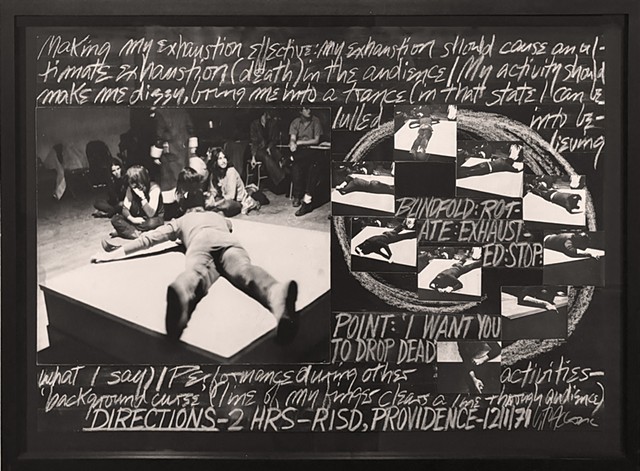 Making my exhaustion effective: my exhaustion should cause an ul-
timate exhaustion (death) in the audience / My activity should
make me dizzy, bring me into a trance (in that state I can be
lulled into be-
lieving
BLINDFOLD: ROT-
ATE: EXHAUST-
ED: STOP:
POINT: 'I WANT YOU
TO DROP DEAD'
what I say) / Performance during other activities-
'background curse' (line of my finger clears a line through audience)
DIRECTIONS-2 HRS-RISD, PROVIDENCE-12/1/71